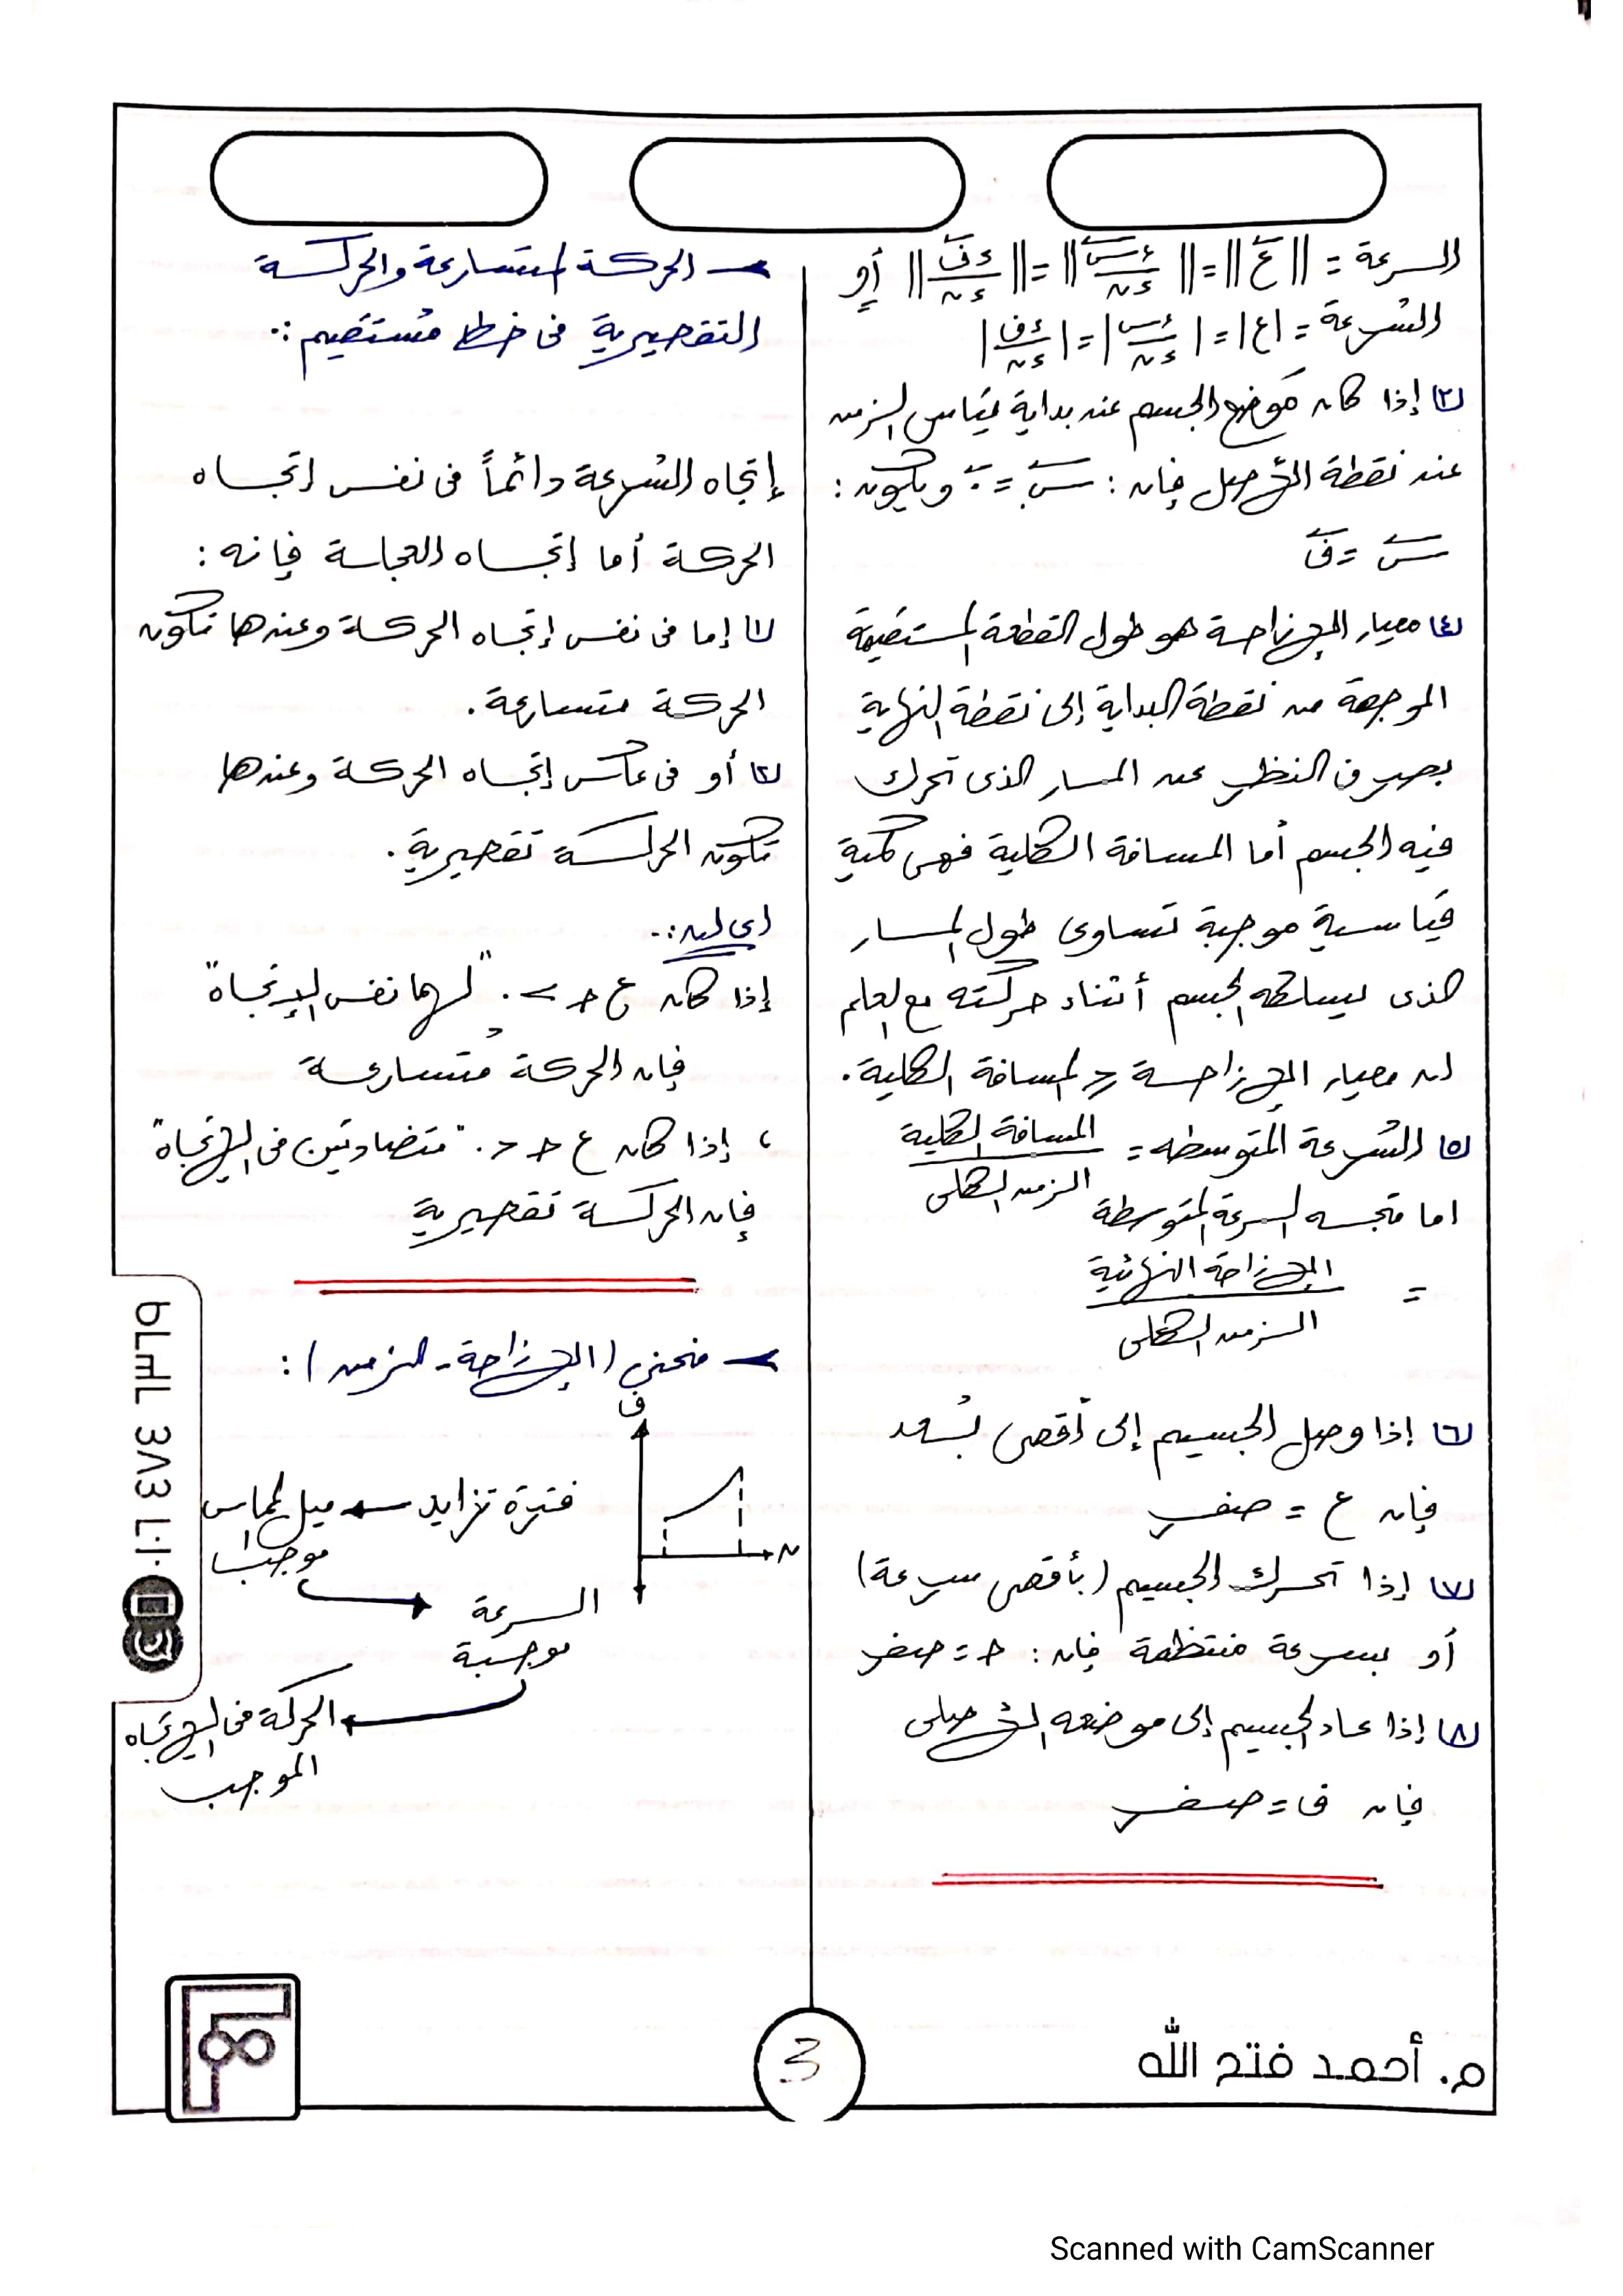 السرعة = ||ع|| = ||ءس/ءن|| = ||ءف/ءن|| أو
السرعة = |ع| = |ءس/ءن| = |ءف/ءن|
٣ إذا كان موضع الجسم عند بداية قياس الزمن
عند نقطة الأصل فإن: س. = . ويكون:
س = ف
٤ معيار الإزاحة هو طول القطعة المستقيمة
الموجهة من نقطة البداية إلى نقطة النهاية
بصرف النظر عن المسار الذى تحرك
فيه الجسم أما المسافة الكلية فهى كمية
قياسية موجبة تساوى طول المسار
الذى يسلكه الجسم أثناء حركته مع العلم
ان معيار الإزاحة ≤ المسافة الكلية.
٥ السرعة المتوسطه = المسافة الكلية / الزمن الكلى
اما متجه السرعة المتوسطة
= الإزاحة النهائية / الزمن الكلى
٦ إذا وصل الجسيم إلى أقصى بُعد
فإن ع = صفر
٧ إذا تحرك الجسيم (بأقصى سرعة)
أو بسرعة منتظمة فإن: حـ = صفر
٨ إذا عاد الجسيم إلى موضعه الأصلى
فإن ف = صفر
الحركة المتسارعة والحركة
التقصيرية فى خط مُستقيم :.
إتجاه السُرعة دائماً فى نفس اتجاه
الحركة أما إتجاه العجلة فإنه :
١ إما فى نفس إتجاه الحركة وعندها تكون
الحركة متسارعة.
٢ أو فى عكس إتجاه الحركة وعندها
تكون الحركة تقصيرية.
أى إن :.
إذا كان ع حـ > . "لهما نفس الإتجاه"
فإن الحركة مُتسارعة
، إذا كان ع حـ < . "متضادتين فى الإتجاه"
فإن الحركة تقصيرية
منحنى (الإزاحة - الزمن) :
ف
فترة تزايد ← ميل المماس
موجب
ن
السرعة
موجبة
الحركة فى الإتجاه
الموجب
3
م. أحمد فتح الله
Scanned with CamScanner